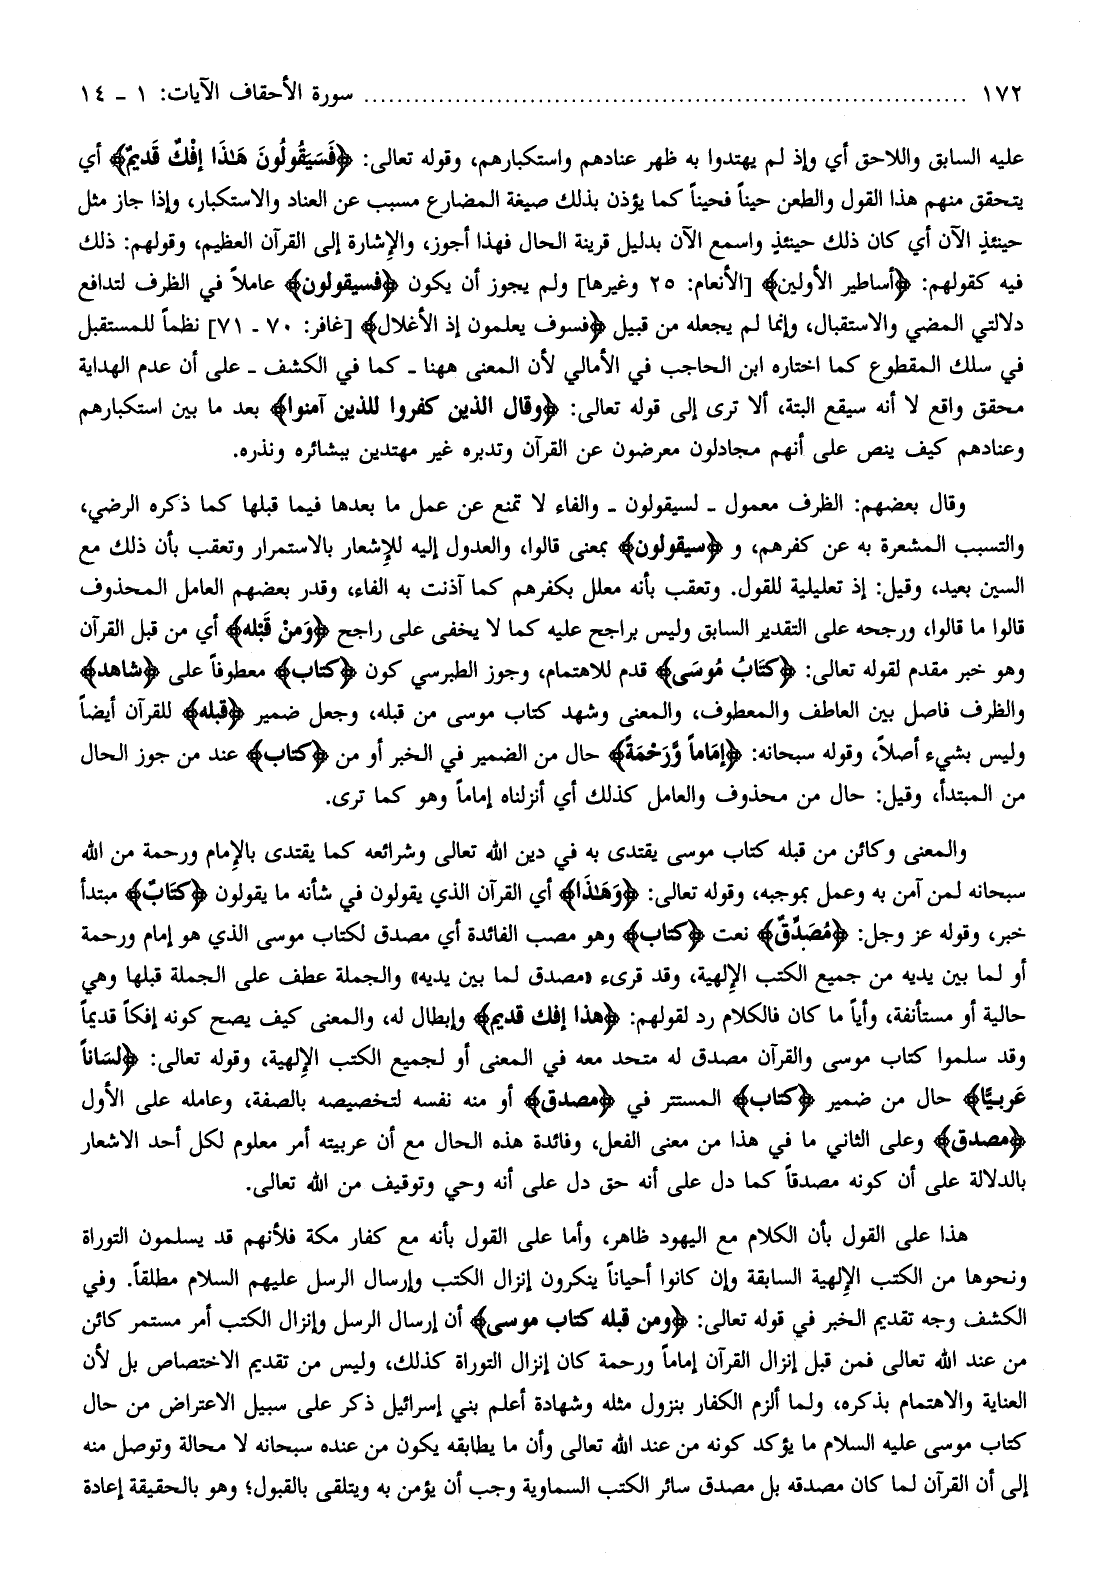 ١٧٢ ........................................................................ سورة الأحقاف الآيات: ١ ـ ١٤
عليه السابق واللاحق أي وإذ لم يهتدوا به ظهر عنادهم واستكبارهم، وقوله تعالى: ﴿فَسَيَقُولُونَ هَـٰذَا إفْكٌ قَديمٌ﴾ أي
يتحقق منهم هذا القول والطعن حيناً فحيناً كما يؤذن بذلك صيغة المضارع مسبب عن العناد والاستكبار، وإذا جاز مثل
حينئذٍ الآن أي كان ذلك حينئذٍ واسمع الآن بدليل قرينة الحال فهذا أجوز، والإشارة إلى القرآن العظيم، وقولهم: ذلك
فيه كقولهم: ﴿أساطير الأولين﴾ [الأنعام: ٢٥ وغيرها] ولم يجوز أن يكون ﴿فسيقولون﴾ عاملاً في الظرف لتدافع
دلالتي المضي والاستقبال، وإنما لم يجعله من قبيل ﴿فسوف يعلمون إذ الأغلال﴾ [غافر: ٧٠ ـ ٧١] نظماً للمستقبل
في سلك المقطوع كما اختاره ابن الحاجب في الأمالي لأن المعنى ههنا ـ كما في الكشف ـ على أن عدم الهداية
محقق واقع لا أنه سيقع البتة، ألا ترى إلى قوله تعالى: ﴿وقال الذين كفروا للذين آمنوا﴾ بعد ما بين استكبارهم
وعنادهم كيف ينص على أنهم مجادلون معرضون عن القرآن وتدبره غير مهتدين ببشائره ونذره.
وقال بعضهم: الظرف معمول ـ لسيقولون ـ والفاء لا تمنع عن عمل ما بعدها فيما قبلها كما ذكره الرضي،
والتسبب المشعرة به عن كفرهم، و ﴿سيقولون﴾ بمعنى قالوا، والعدول إليه للإشعار بالاستمرار وتعقب بأن ذلك مع
السين بعيد، وقيل: إذ تعليلية للقول. وتعقب بأنه معلل بكفرهم كما آذنت به الفاء، وقدر بعضهم العامل المحذوف
قالوا ما قالوا، ورجحه على التقدير السابق وليس براجح عليه كما لا يخفى على راجح ﴿وَمنْ قَبْله﴾ أي من قبل القرآن
وهو خبر مقدم لقوله تعالى: ﴿كتَابُ مُوسَى﴾ قدم للاهتمام، وجوز الطبرسي كون ﴿كتاب﴾ معطوفاً على ﴿شاهد﴾
والظرف فاصل بين العاطف والمعطوف، والمعنى وشهد كتاب موسى من قبله، وجعل ضمير ﴿قبله﴾ للقرآن أيضاً
وليس بشيء أصلاً، وقوله سبحانه: ﴿إمَاماً وَّرَحْمَةً﴾ حال من الضمير في الخبر أو من ﴿كتاب﴾ عند من جوز الحال
من المبتدأ، وقيل: حال من محذوف والعامل كذلك أي أنزلناه إماماً وهو كما ترى.
والمعنى وكائن من قبله كتاب موسى يقتدى به في دين الله تعالى وشرائعه كما يقتدى بالإمام ورحمة من الله
سبحانه لمن آمن به وعمل بموجبه، وقوله تعالى: ﴿وَهَـٰذَا﴾ أي القرآن الذي يقولون في شأنه ما يقولون ﴿كتَابٌ﴾ مبتدأ
خبر، وقوله عز وجل: ﴿مُصَدِّقٌ﴾ نعت ﴿كتاب﴾ وهو مصب الفائدة أي مصدق لكتاب موسى الذي هو إمام ورحمة
أو لما بين يديه من جميع الكتب الإلهية، وقد قرىء «مصدق لما بين يديه» والجملة عطف على الجملة قبلها وهي
حالية أو مستأنفة، وأياً ما كان فالكلام رد لقولهم: ﴿هذا إفك قديم﴾ وإبطال له، والمعنى كيف يصح كونه إفكاً قديماً
وقد سلموا كتاب موسى والقرآن مصدق له متحد معه في المعنى أو لجميع الكتب الإلهية، وقوله تعالى: ﴿لسَاناً
عَربيًا﴾ حال من ضمير ﴿كتاب﴾ المستتر في ﴿مصدق﴾ أو منه نفسه لتخصيصه بالصفة، وعامله على الأول
﴿مصدق﴾ وعلى الثاني ما في هذا من معنى الفعل، وفائدة هذه الحال مع أن عربيته أمر معلوم لكل أحد الاشعار
بالدلالة على أن كونه مصدقاً كما دل على أنه حق دل على أنه وحي وتوقيف من الله تعالى.
هذا على القول بأن الكلام مع اليهود ظاهر، وأما على القول بأنه مع كفار مكة فلأنهم قد يسلمون التوراة
ونحوها من الكتب الإلهية السابقة وإن كانوا أحياناً ينكرون إنزال الكتب وإرسال الرسل عليهم السلام مطلقاً. وفي
الكشف وجه تقديم الخبر في قوله تعالى: ﴿ومن قبله كتاب موسى﴾ أن إرسال الرسل وإنزال الكتب أمر مستمر كائن
من عند الله تعالى فمن قبل إنزال القرآن إماماً ورحمة كان إنزال التوراة كذلك، وليس من تقديم الاختصاص بل لأن
العناية والاهتمام بذكره، ولما ألزم الكفار بنزول مثله وشهادة أعلم بني إسرائيل ذكر على سبيل الاعتراض من حال
كتاب موسى عليه السلام ما يؤكد كونه من عند الله تعالى وأن ما يطابقه يكون من عنده سبحانه لا محالة وتوصل منه
إلى أن القرآن لما كان مصدقه بل مصدق سائر الكتب السماوية وجب أن يؤمن به ويتلقى بالقبول؛ وهو بالحقيقة إعادة